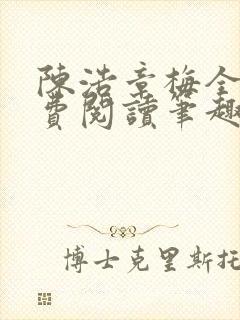 陳浩章梅全
費閱讀筆趣
博士克里斯托